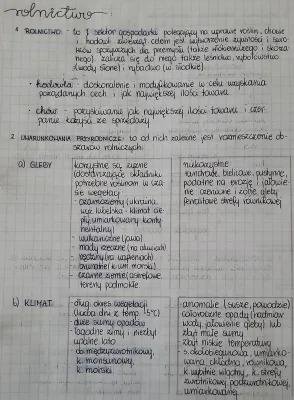 rolnictwo
1 ROLNICTWO: to 1 sektor gospodarki polegający na uprawie roślin, chowie
i hodowli zwierząt. celem jest wytworzenie żywności i suro-
ców spożywczych dla przemysłu (także włókienniczego i skórza-
nego). zalicza się do niego także leśnictwo, rybołówstwo
(wody słone) i rybactwo (w słodkie).
• hodowla - doskonalenie i modyfikowanie w celu uzyskania
pożądanych cech i jak największej ilości towaru
• chów - pozyskiwanie jak największej ilości towaru i czer-
panie korzyści ze sprzedaży
2 UWARUNKOWANIA PRZYRODNICZE: to od nich zależne jest rozmieszczenie ob-
szarów rolniczych.
a) GLEBY
korzystne są żyzne
(dostarczające składniki
potrzebne roślinom w cza-
sie wegetacji)
- czarnoziemy (ukraina,
wyż. lubelska - klimat cie-
pły umiarkowany konty-
nentalny)
- wulkaniczne (jawa)
- mady rzeczne (na aluwiach)
- rędziny (na wapieniach)
- brunatne (k. um. morski)
- czarne ziemie,
tereny podmokłe
niekorzystne
tundrowe, bielicowe, pustynne,
podatne na erozję i jałowie-
nie czerwone i żółte gleby
ferralitowe strefy równikowej
b) KLIMAT
- długi okres wegetacji
(liczba dni z temp. >5°C)
- duże sumy opadów
- łagodne zimy i niezbyt
upalne lato
k. monsunowy,
k. morski
anomalie (susze, powodzie)
całoroczne opady (nadmiar
wody, jałowienie gleby) lub
zbyt małe sumy
zbyt niskie temperatury
s. okołobiegunowa, umiarko-
wana chłodna, równikowa,
k. wybitnie wilgotny, k. strefy
zwrotnikowej, podzwrotnikowej,
umiarkowanej